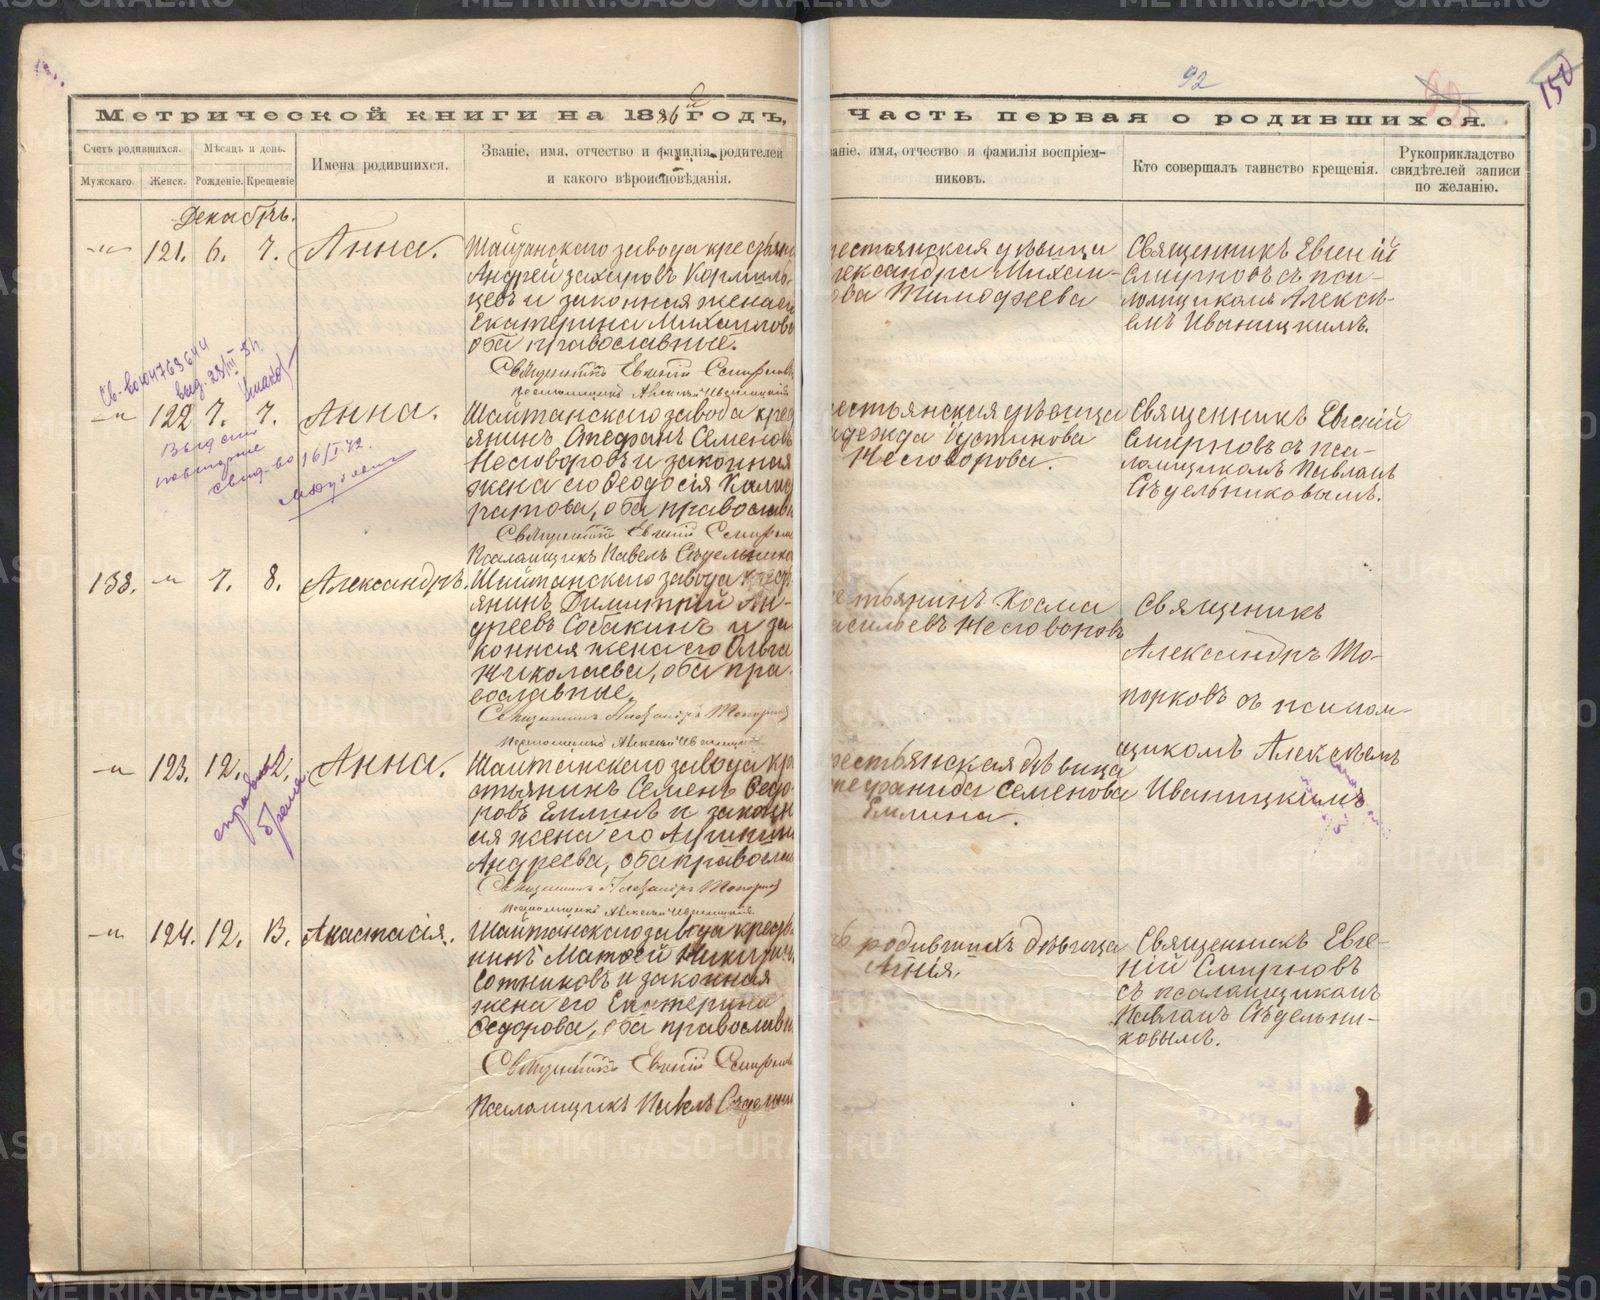 92
150
Метрической книги на 1886й годъ,
Часть первая о родившихся.
Счетъ родившихся.
Мужскаго.
Женск.
Мѣсяцъ и день.
Рожденіе.
Крещеніе
Имена родившихся.
Званіе, имя, отчество и фамилія родителей
и какого вѣроисповѣданія.
званіе, имя, отчество и фамилія воспріем-
никовъ.
Кто совершалъ таинство крещенія.
Рукоприкладство
свидѣтелей записи
по желанію.
Декабрь.
121. 6. 7. Анна.
Шайтанскаго завода крестьяни
Андрей Захаровъ Кормиль-
цевъ и законная жена его
Екатерина Михаилова
оба православные.
Священникъ Евгеній Смирновъ
Псаломщикъ Алексѣй Иваницкій
рестьянская дѣвица
лександра Михаи-
ова Тимофеева
Священникъ Евгеній
Смирновъ съ пса-
ломщикомъ Алексѣ-
емъ Иваницкимъ.
122 7. 7. Анна.
Выдано
повторное
свид-во 16/I-42.
Шайтанскаго завода крес
янинъ Стефанъ Семеновъ
Несговоровъ и законная
жена его Феодосія Калис
ратова, оба православн
Священникъ Евгеній Смирновъ
Псаломщикъ Павелъ Сѣдельнико
рестьянская дѣвица
адежда Іустинова
Несговорова.
Священникъ Евгеній
Смирновъ съ пса-
ломщикомъ Павломъ
Сѣдельниковымъ.
138. 7. 8. Александръ.
Шайтанскаго завода крест
янинъ Димитрій Ан-
дреевъ Собакинъ и за
конная жена его Ольга
Николаева, оба пра-
вославные.
Священникъ Александръ Топорковъ
Псаломщикъ Алексѣй Иваницкій
естьянинъ Косма
асильевъ Несговоровъ
Священникъ
Александръ То-
порковъ съ псалом-
щикомъ Алексѣемъ
Иваницкимъ
123. 12. 12. Анна.
справка
о браке
Шайтанскаго завода кр
стьянинъ Семенъ Федо-
ровъ Емлинъ и законн
ая жена его Агрипина
Андреева, оба православн
Священникъ Александръ Топорковъ
Псаломщикъ Алексѣй Иваницкій.
рестьянская дѣвица
тефанида Семенова
Емлина.
124. 12. 13. Анастасія.
Шайтанскаго завода кресть
нинъ Матѳей Никитинъ
Сотниковъ и законная
жена его Екатерина
Федорова, оба православн
Священникъ Евгеній Смирновъ
Псаломщикъ Павелъ Сѣдельни
родившихъ дѣвица
Агнія.
Священникъ Евге-
ній Смирновъ
съ псаломщикомъ
Павломъ Сѣдельни-
ковымъ.
METRIKI.GASO-URAL.RU